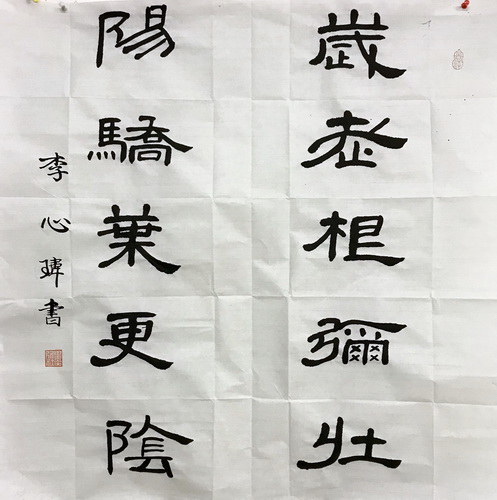 歲老根彌壯
陽驕葉更陰
李心瑋書